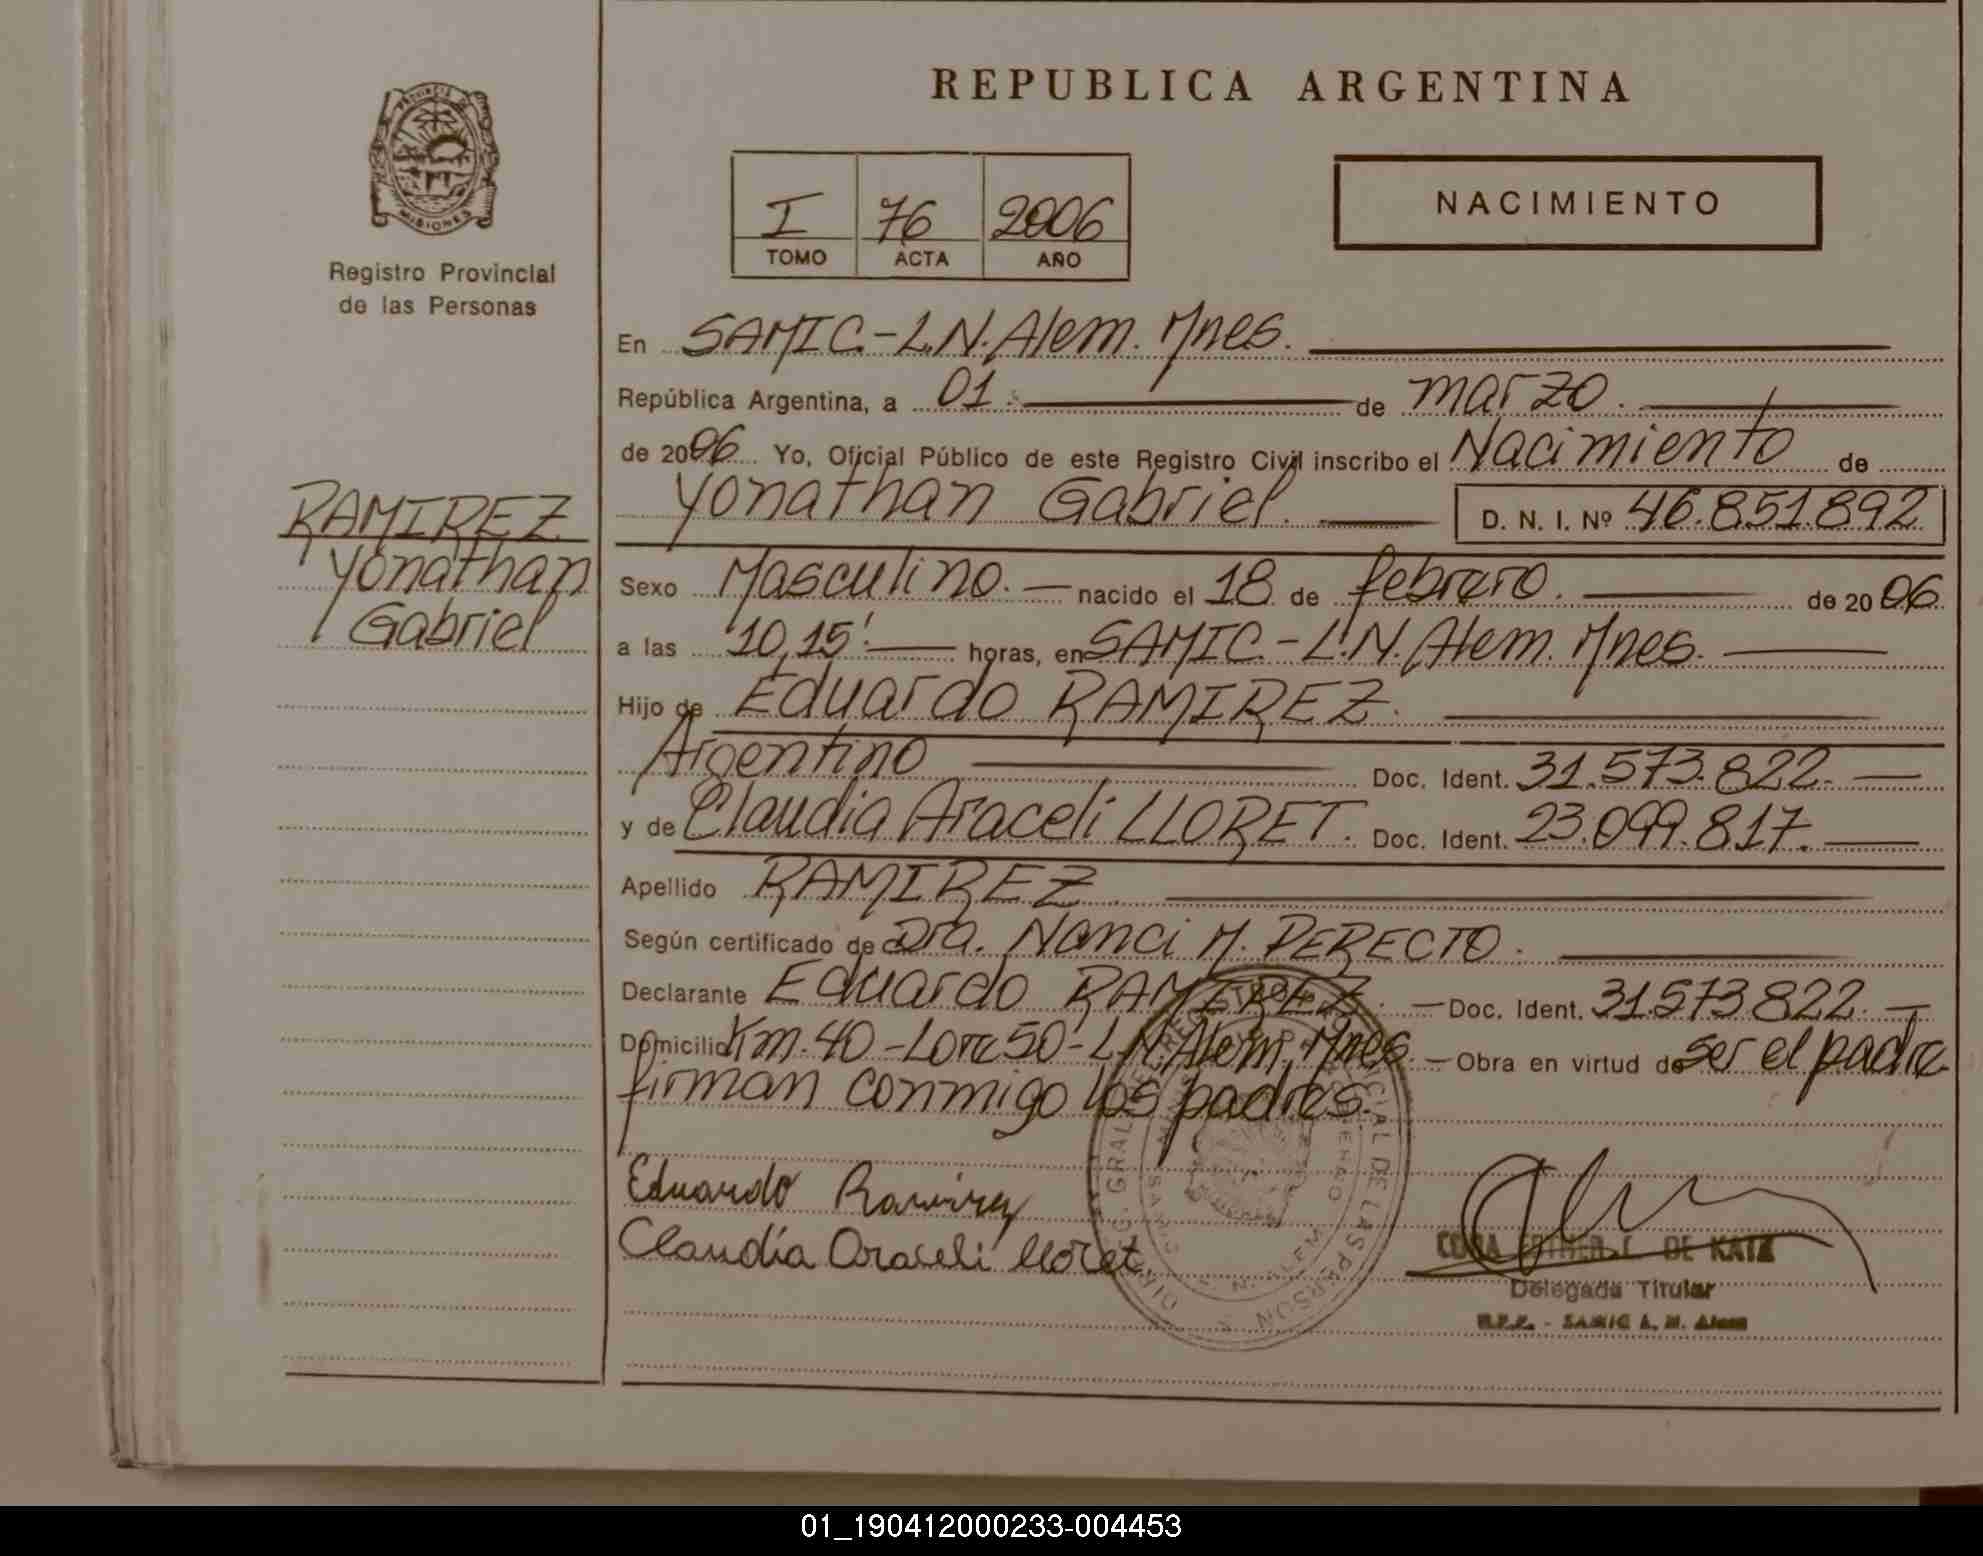 REPUBLICA ARGENTINA
PROVINCIA DE
MISIONES
Registro Provincial
de las Personas
I 76 2006
TOMO ACTA AÑO
NACIMIENTO
En SAMIC.-L.N.Alem. Mnes.
República Argentina, a 01. de marzo.
de 2006. Yo, Oficial Público de este Registro Civil inscribo el Nacimiento de
Yonathan Gabriel. D. N. I. Nº 46.851.892
RAMIREZ
Yonathan
Gabriel
Sexo Masculino. nacido el 18 de febrero. de 2006.
a las 10,15' horas, en SAMIC.-L.N. Alem. Mnes.
Hijo de Eduardo RAMIREZ.
Argentino Doc. Ident. 31.573.822.
y de Claudia Araceli LLORET. Doc. Ident. 23.099.817.
Apellido RAMIREZ
Según certificado de Dra. Nanci M. PERECTO.
Declarante Eduardo RAMIREZ. Doc. Ident. 31.573.822.
Domicilio Km.40-Lote 50-L.N.Alem. Mnes. Obra en virtud de ser el padre
firman conmigo los padres.
Eduardo Ramirez
Claudia Araceli Lloret.
DE KATZ
Delegada Titular
R.P.P. - SAMIC L. N. Alem
01_190412000233-004453